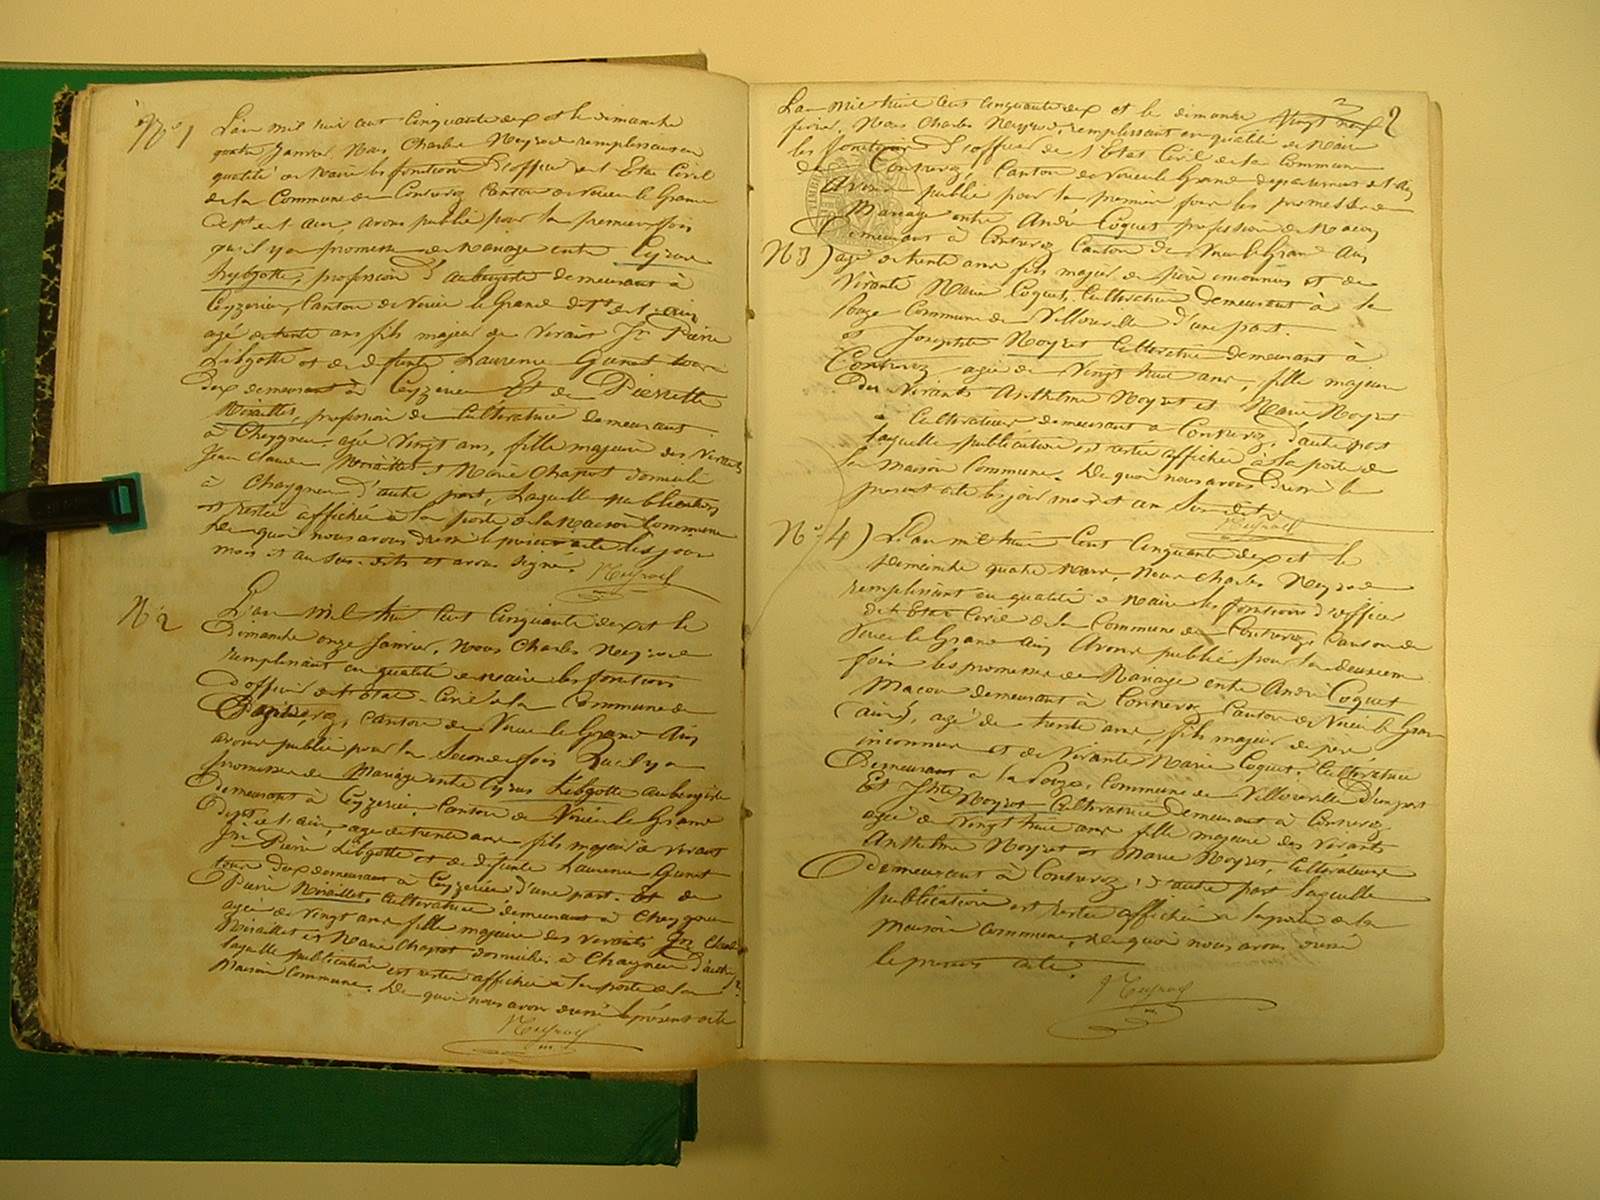 N° 1
L'an mil huit cent cinquante sept et le dimanche
quatre Janvier, Nous Charles Neyrod remplissant en
qualité de Maire les fonctions d'officier de l'Etat Civil
de la Commune de Contrevoz Canton de Virieu le Grand
Dept de l'ain, avons publié pour la premiere fois
qu'il y a promesse de Mariage entre Cyrus
Lebgotte, profession d'Aubergiste demeurant à
Ceyzerieu, Canton de Virieu le Grand dept de l'ain
agé de trente ans fils majeur de vivant Jn Pierre
Lebgotte et de defunte Laurence Gunet tous
deux demeurant à Ceyzerieu Et de Pierrette
Miraillet, profession de Cultivatrice demeurant
à Cheygneu agée vingt ans, fille majeure des vivants
Jean Claude Miraillet et Marie Chapot domicilié
à Chaygneu d'autre part, Laquelle publication
est restée affichée à la porte de la Maison Commune
De quoi nous avons dressé le présent acte les jour
mois et an sus-dits et avons signé. Neyrod
N° 2
L'an mil huit cent cinquante sept et le
Dimanche onze Janvier, Nous Charles Neyrod
remplissant en qualité de Maire les fonctions
d'officier de l'Etat-Civil de la Commune de
Contrevoz, Canton de Virieu le Grand Ain
avons publié pour la Seconde fois Qu'il y a
promesse de Mariage entre Cyrus Lebgotte aubergiste
demeurant à Ceyzerieu Canton de Virieu le Grand
Dept de l'ain, agé de trente ans fils majeur de vivant
Jn Pierre Lebgotte et de defunte Laurence Gunet
tous deux demeurant à Ceyzerieu d'une part. Et de
Pierre Miraillet, Cultivatrice demeurant à Cheygneu
agée de vingt ans fille majeure des vivants Jn Claude
Miraillet et Marie Chapot domiciliés à Chaygneu d'autre pt
laquelle publication est restée affichée à la porte de la
Maison Commune. De quoi nous avons dressé le présent acte
Neyrod
2
2
L'an mil huit cent cinquante sept et le dimanche vingt neuf
fevrier, Nous Charles Neyrod, remplissant en qualité de Maire
les fonctions d'officier de l'Etat Civil de la Commune
de Contrevoz, Canton de Virieu le Grand departement de l'ain
Avons publié pour la premiere fois les promesses de
Mariage entre André Coquet profession de Maçon
Demeurant à Contrevoz Canton de Virieu le Grand Ain
N° 3) agé de trente ans fils majeur de père inconnu et de
vivante Marie Coquet, Cultivatrice demeurant à la
Commune de Villeurville d'une part.
et Josephte Noyret Cultivatrice demeurant à
Contrevoz agée de vingt huit ans, fille majeure
des vivants Anthelme Noyret et Marie Noyret
Cultivateurs demeurant à Contrevoz, d'autre part
laquelle publication est restée affichée à la porte de
la Maison Commune. De quoi nous avons dressé le
présent acte les jour mois et an Sus-dits
Neyrod
N° 4) L'an mil huit cent cinquante sept et le
dimanche quatre Mars, Nous Charles Neyrod
remplissant en qualité de Maire les fonctions d'officier
de l'Etat Civil de la Commune de Contrevoz Canton de
Virieu le Grand Ain Avons publié pour la deuxieme
fois les promesses de Mariage entre André Coquet
Maçon demeurant à Contrevoz Canton de Virieu le Grand
(ain), agé de trente ans, fils majeur de père
inconnu et de vivante Marie Coquet. Cultivatrice
Demeurant à la Commune de Villeurville D'une part
Et Jthe Noyret Cultivatrice Demeurant à Contrevoz
agée de vingt huit ans fille majeure des vivants
Anthelme Noyret et Marie Noyret, Cultivateurs
Demeurant à Contrevoz, d'autre part laquelle
publication est restée affichée à la porte de la
maison commune, De quoi nous avons dressé
le présent acte.
Neyrod